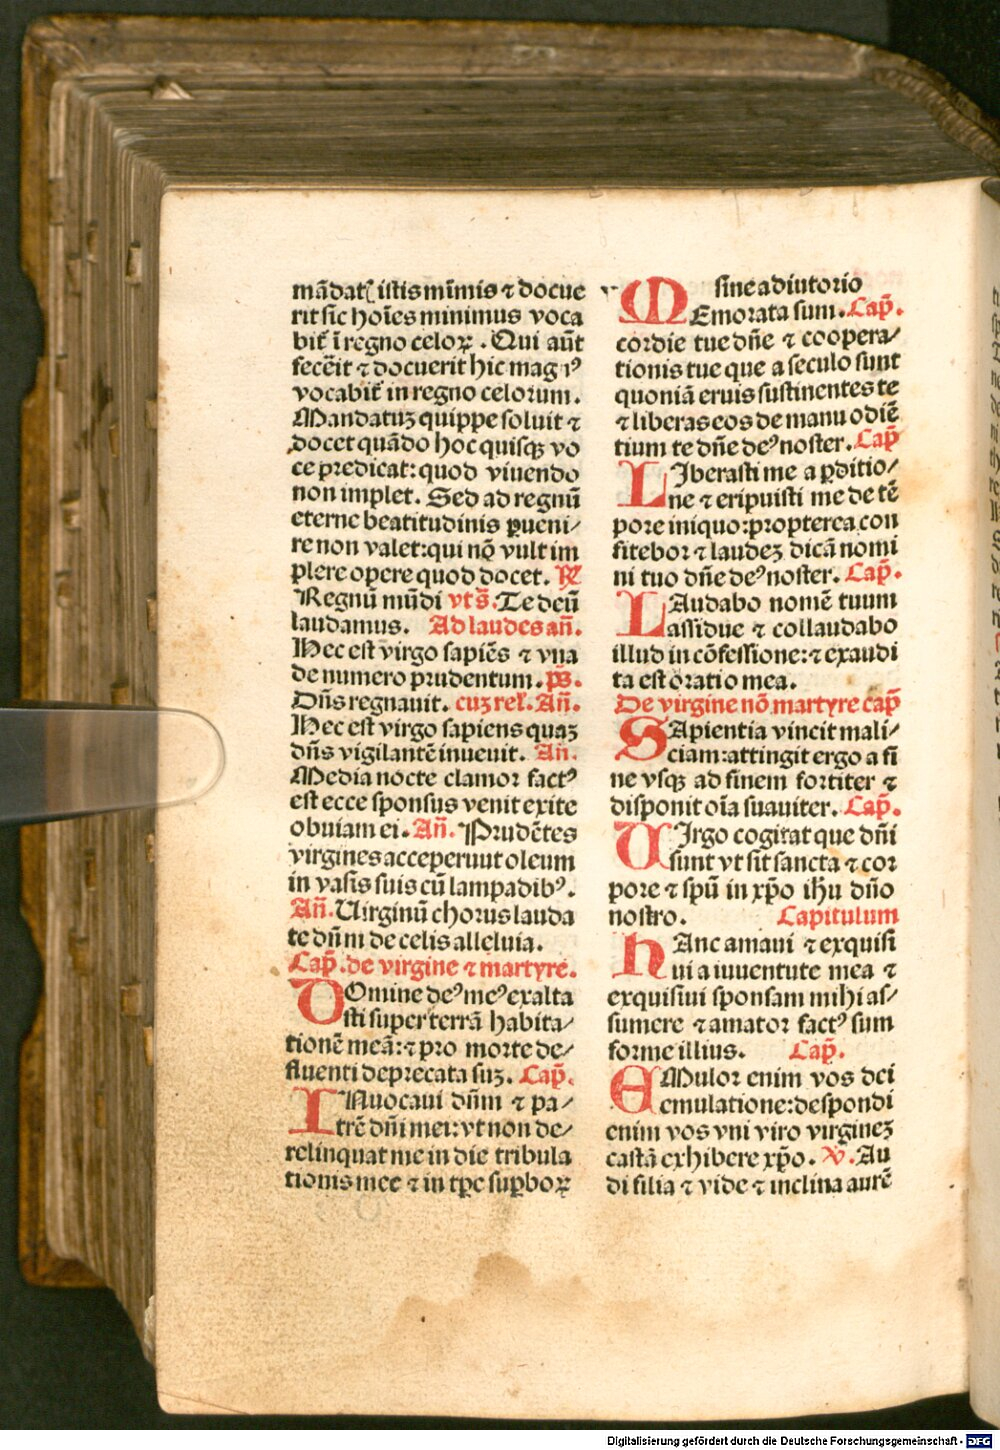 mādat istis mīmis ⁊ docue
rit sic hoīes minimus voca
bit̄ ī regno celoꝝ . Qui aūt
fecēit ⁊ docuerit hic magꝰ
vocabit̄ in regno celorum.
Mandatuꝫ quippe soluit ⁊
docet quādo hoc quisqꝫ vo
ce predicat: quod viuendo
non implet. Sed ad regnū
eterne beatitudinis ꝑueni/
re non valet: qui nō vult im
plere opere quod docet. R̄
Regnū mūdi vt s̄. Te deū
laudamus. Ad laudes añ.
Hec est virgo sapiēs ⁊ vna
de numero prudentum. ps̄.
Dñs regnauit. cuꝫ rel̄. Añ.
Hec est virgo sapiens quaꝫ
dñs vigilantē inuenit. Añ.
Media nocte clamor factꝰ
est ecce sponsus venit exite
obuiam ei. Añ. Prudētes
virgines acceperunt oleum
in vasis suis cū lampadibꝰ.
Añ. Uirginū chorus lauda
te dñm de celis alleluia.
Cap̄. de virgine ⁊ martyre.
DOmine deꝰ meꝰ exalta
sti super terrā habita/
tionē meā: ⁊ pro morte de/
fluenti deprecata suꝫ. Cap̄.
INuocaui dñm ⁊ pa/
trē dñi mei: vt non de/
relinquat me in die tribula
tionis mee ⁊ in tꝑe suꝑboꝝ
sine adiutorio
MEmorata sum. Cap̄.
cordie tue dñe ⁊ coopera/
tionis tue que a seculo sunt
quoniā eruis sustinentes te
⁊ liberas eos de manu odiē
tium te dñe deꝰ noster. Cap̄
LIberasti me a ꝑditio/
ne ⁊ eripuisti me de tē
pore iniquo: propterea con
fitebor ⁊ laudeꝫ dicā nomi
ni tuo dñe deꝰ noster. Cap̄.
LAudabo nomē tuum
assidue ⁊ collaudabo
illud in cōfessione: ⁊ exaudi
ta est oratio mea.
De virgine nō martyre cap̄
SApientia vincit mali/
ciam: attingit ergo a fi
ne vsqꝫ ad finem fortiter ⁊
disponit oīa suauiter. Cap̄.
UIrgo cogitat que dñi
sunt vt sit sancta ⁊ cor
pore ⁊ spū in xp̄o ihu dño
nostro. Capitulum
HAnc amaui ⁊ exquisi
ui a iuuentute mea ⁊
exquisiui sponsam mihi as/
sumere ⁊ amator factꝰ sum
forme illius. Cap̄.
EMulor enim vos dei
emulatione: despondi
enim vos vni viro virgineꝫ
castā exhibere xp̄o. ℣. Au
di filia ⁊ vide ⁊ inclina aurē
Digitalisierung gefördert durch die Deutsche Forschungsgemeinschaft - DFG